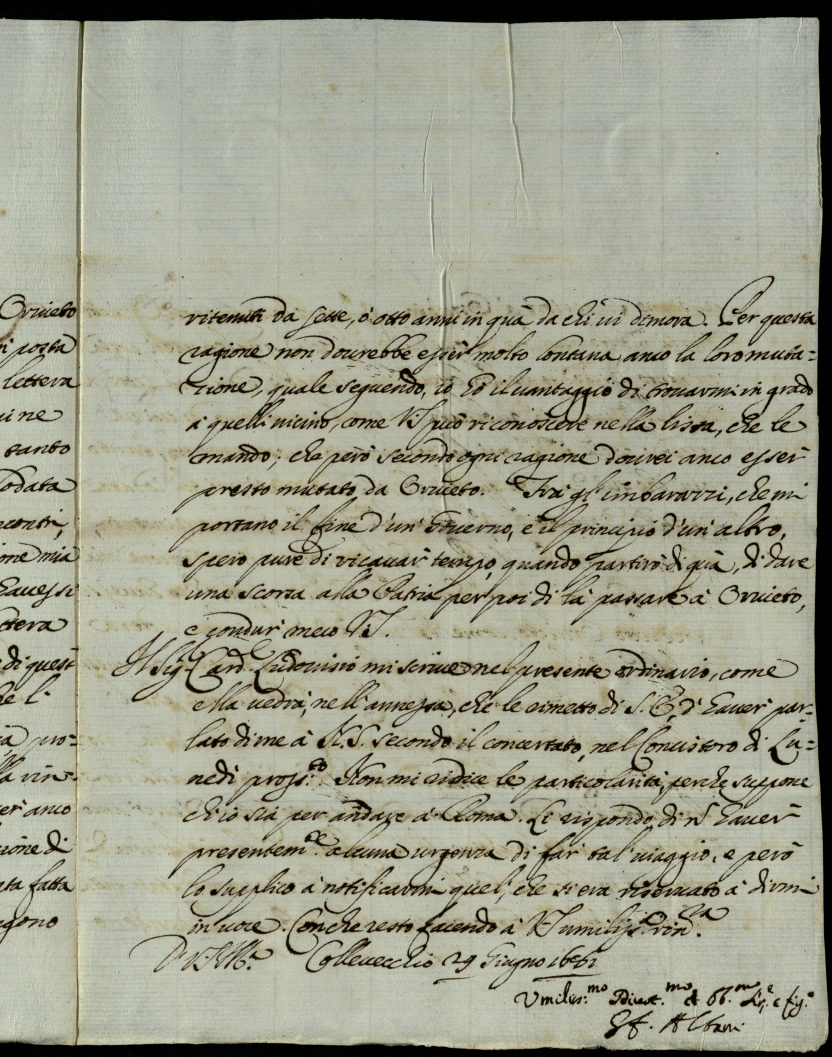 Orvieto
posta
lettera
ne
tanto
lodata
contri,
ione mia
havessi
ttera
di quest
he l'
ia pro=
lla vin=
er anco
zione di
ata fatta
gono
ritenuti da sette, ò otto anni in quà da chi vi dimora. Per questa
ragione non dovrebbe esser molto lontana anco la loro muta=
zione, quale seguendo, io hò il vantaggio di trovarmi in grado
à quelli vicino, come VS può riconoscere nella lista, che le
mando; che però secondo ogni ragione dovrei anco esser
presto mutato da Orvieto. Frà gl'imbarazzi, che mi
portano il fine d'un Governo, e il principio d'un altro,
spero pure di ricavar tempo, quando partirò di quà, di dare
una scorsa alla Patria per poi di là passare à Orvieto,
e condur meco VS.
Il Sig.r Card.le Ludovisio mi scrive nel presente ordinario, come
ella vedrà nell'annessa, che le rimetto di S. E., d'haver par=
lato di me à N.S. secondo il concertato, nel Concistoro di Lu=
nedi pross.to Non mi ridice le particolarità, perche suppone
ch'io sia per andare à Roma. Le rispondo di nõ haver
presentem.te alcuna urgenza di far tal viaggio, e però
lo supplico à notificarmi quel, che si era riservato à dirmi
in voce. Con che resto facendo à VS umiliss.a rive.za
Di VS Ill.ma Collevecchio 29 Giugno 1661
Umiliss.mo Divot.mo et Obb.mo Se.re e fig.o
Gf. Albani